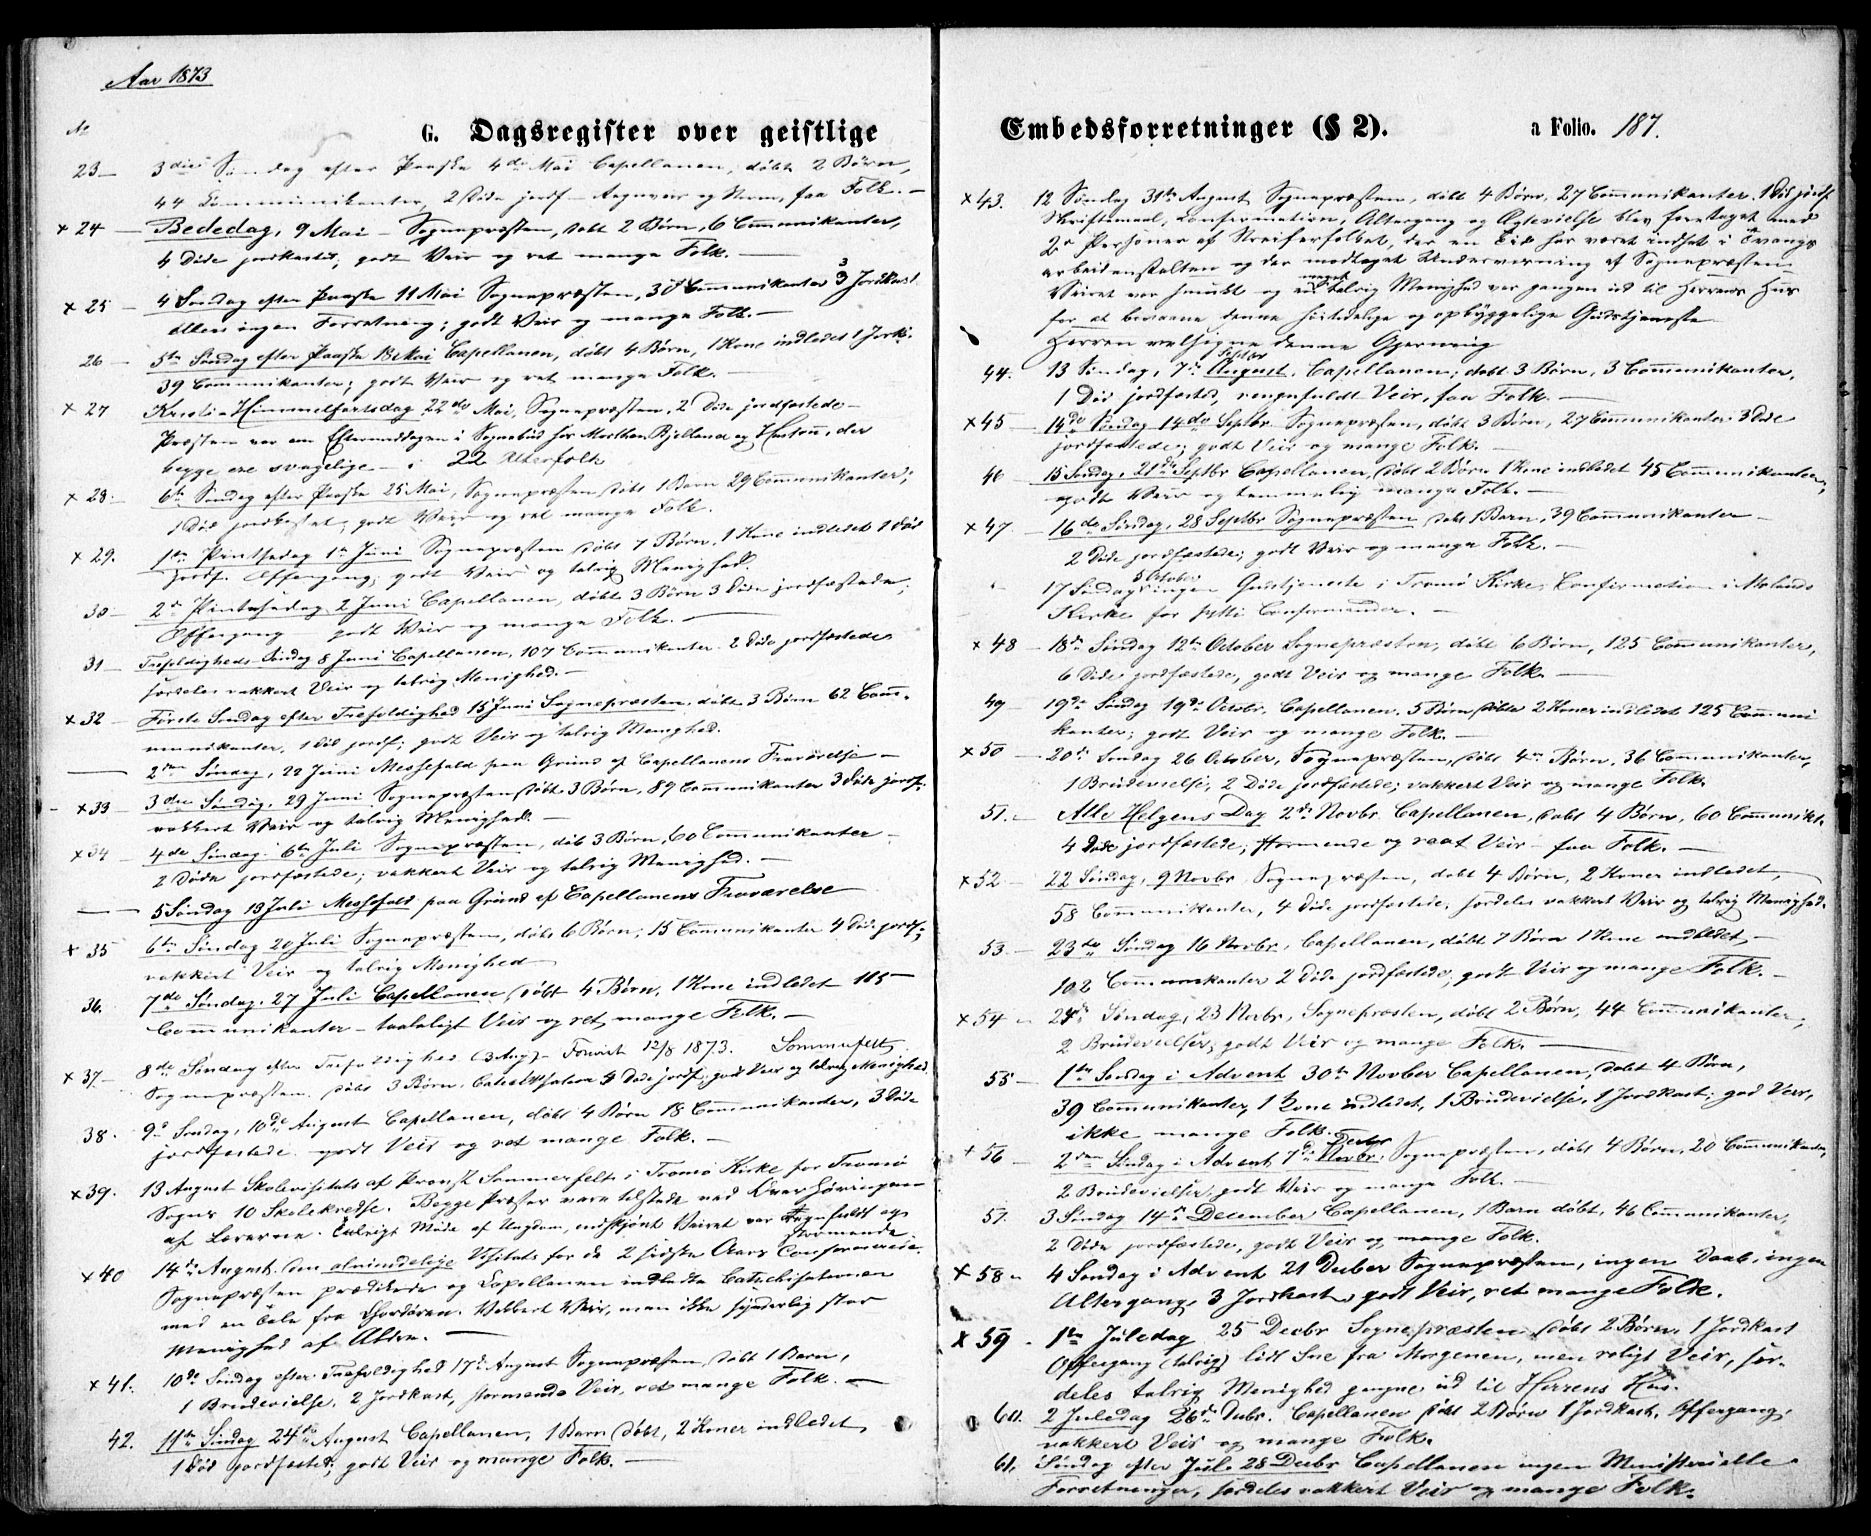 Aar 1873
No
G. Dagsregister over geistlige
23 — 3die Søndag efter Paaske 4de Mai Capellanen, døbt 2 Børn,
44 Communikanter, 2 Døde jordf. — Regnveir og Storm, faa Folk. —
x 24 — Bededag, 9 Mai — Sognepræsten, døbt 2 Børn, 6 Communikanter,
4 Døde jordkastet, godt Veir og ret mange Folk. —
x 25 — 4 Søndag efter Paaske 11 Mai Sognepræsten, 30 Communikanter 3 Jordkast
ellers ingen Forretning; godt Veir og mange Folk. —
26 — 5te Søndag efter Paaske 18 Mai Capellanen, døbt 4 Børn, 1 Kone indledet 1 Jordk.
39 Communikanter; godt Veir og ret mange Folk. —
x 27 Kristi Himmelfartsdag 22de Mai, Sognepræsten, 2 Døde jordfæstede —
Præsten var om Eftermiddagen i Sognebud hos Morthen Bjelland og Hustru, der
begge ere svagelige — i 22 Alterfolk
x 28. 6te Søndag efter Paaske 25 Mai, Sognepræsten døbt 1 Barn 29 Communikanter;
1 Død jordkastet, godt Veir og ret mange Folk.
x 29. 1ste Pintsedag 1te Juni Sognepræsten døbt 7 Børn, 1 Kone indledet 1 Død
jordf. Offergang, godt Veir og talrig Menighed.
30 — 2de Pintsedag 2 Juni Capellanen, døbt 3 Børn 3 Døde jordfæstede;
Offergang — godt Veir og mange Folk. —
31 — Trefoldigheds Søndag 8 Juni Capellanen, 107 Communikanter. 2 Døde jordfæstede
særdeles vakkert Veir og talrig Menighed. —
x 32 — Første Søndag efter Trefoldighed 15 Juni Sognepræsten, døbt 3 Børn 62 Com-
munikanter, 1 Død jordf; godt Veir og talrig Menighed.
— 2den Søndag, 22 Juni Messefald paa Grund af Capellanens Fraværelse —
x 33 — 3die Søndag, 29 Juni Sognepræsten døbt 3 Børn, 89 Communikanter 3 Døde jordf.
vakkert Veir og talrig Menighed. —
x 34 — 4de Søndag 6te Juli Sognepræsten, døbt 3 Børn, 60 Communikanter —
2 Døde jordfæstede; vakkert Veir og talrig Menighed. —
— 5 Søndag 13 Juli Messefald paa Grund af Capellanens Fraværelse
x 35 6te Søndag 20 Juli Sognepræsten, døbt 6 Børn, 15 Communikanter 4 Døde jordf;
vakkert Veir og talrig Menighed —
36. 7de Søndag. 27 Juli Capellanen, døbt 4 Børn, 1 Kone indledet 115
Communikanter — taaleligt Veir og ret mange Folk. —
8de Søndag efter Trefoldighed (3 Aug) — Forevist 12/8 1873. Sommerfelt
x 37 — Sognepræsten. døbt 3 Børn. 4 Døde jordf; godt Veir og talrig Menighed.
38. 9de Søndag, 10de August Capellanen, døbt 4 Børn 18 Communikanter, 3 Døde
jordfæstede. godt Veir og ret mange Folk. —
x 39. 13 August Skolevisitats af Provst Sommerfelt i Tromø Kirke for Tromø
Sogns 10 Skolekredse. Begge Præster vare tilstede ved Overhøringen
af Lærerne. Talrigt Møde af Ungdom, endskjønt Veiret var regnfuldt og
stormende
x 40 14de August. den almindelige Visitats for de 2 sidste Aars Confirmerede.
Sognepræsten prædikede og Capellanen indledte Catechisationen
med en Tale fra Chordøren. Vakkert Veir, men ikke synderlig stor
Menighed af Ældre. —
x 41. 10de Søndag efter Trefoldighed 17de August Sognepræsten, døbt 1 Barn,
1 Brudevielse, 2 Jordkast, stormende Veir, ret mange Folk. —
42. 11te Søndag 24de August Capellanen, 1 Barn døbt, 2 Koner indledet,
1 Død jordfæstet; godt Veir og mange Folk. —
Embedsforretninger (§ 2). a Folio. 187.
x 43. 12 Søndag 31te August Sognepræsten, døbt 4 Børn, 27 Communikanter, 1 Død jordf.
Skriftemaal, Confirmation, Altergang og Ægtevielse blev foretaget med
2 Personer af Streiferfolket, der en Tid har været indsat i Tvangs
arbeidanstalten og der modtaget Underviisning af Sognepræsten.
Veiret var smukt og en meget talrig Menighed var gangen ind til Herrens Huus
for at bivaane denne høitidelige og opbyggelige Gudstjeneste
Herren velsigne denne Gjerning
44. 13 Søndag, 7de August Septbr, Capellanen; døbt 3 Børn, 3 Communikanter,
1 Død jordfæstet, regnfuldt Veir, faa Folk. —
x 45 — 14de Søndag 14de Septbr. Sognepræsten, døbt 3 Børn, 27 Communikanter 3 Døde
jordfæstede; godt Veir og mange Folk. —
46 — 15 Søndag, 21de Septbr Capellanen, døbt 2 Børn 1 Kone indledet 45 Communikanter,
godt Veir og temmelig mange Folk. —
x 47. — 16de Søndag, 28 Septbr Sognepræsten døbt 1 Barn, 39 Communikanter —
2 Døde jordfæstede; godt Veir og mange Folk. —
17 Søndag 5 October ingen Gudstjeneste i Tromø Kirke, Confirmation i Molands
Kirke for sytti Confirmander. —
x 48 — 18de Søndag 12te October Sognepræsten, døbt 6 Børn, 125 Communikanter,
6 Døde jordfæstede, godt Veir og mange Folk. —
49 — 19de Søndag 19de Octobr. Capellanen. 5 Børn døbte 2 Koner indledet 125 Communi
kanter; godt Veir og mange Folk. —
x 50 — 20de Søndag 26 October, Sognepræsten, døbt 4 Børn, 36 Communikanter,
1 Brudevielse, 2 Døde jordfæstede; vakkert Veir og mange Folk.
51. — Alle Helgens Dag 2de Novbr. Capellanen, døbt 4 Børn, 60 Communikt.
4 Døde jordfæstede, stormende og raat Veir — faa Folk. —
x 52 — 22 Søndag, 9 Novbr. Sognepræsten, døbt 4 Børn, 2 Koner indledet,
58 Communikanter, 4 Døde jordfæstede; særdeles vakkert Veir og talrig Menighed.
53. — 23de Søndag 16 Novbr, Capellanen, døbt 7 Børn 1 Kone indledet, —
102 Communikanter 2 Døde jordfæstede; godt Veir og mange Folk. —
x 54 — 24de Søndag, 23 Novbr, Sognepræsten, døbt 2 Børn, 44 Communikanter;
2 Brudevielser; godt Veir og mange Folk. —
55 — 1ste Søndag i Advent 30te Novber Capellanen, døbt 4 Børn,
39 Communikanter, 1 Kone indledet, 1 Brudevielse, 1 Jordkast; god Veir,
ikke mange Folk.
x 56 — 2den Søndag i Advent 7de Novbr. Decbr Sognepræsten, døbt 4 Børn, 20 Communikanter,
2 Brudevielser, godt Veir og mange Folk. —
57. 3 Søndag 14de December, Capellanen, 1 Barn døbt, 46 Communikanter,
2 Døde jordfæstede, godt Veir og mange Folk.
x 58 — 4 Søndag i Advent 21 Decber Sognepræsten, ingen Daab, ingen
Altergang, 3 Jordkast, godt Veir, ret mange Folk.
x 59 — 1ste Juledag 25 Decbr Sognepræsten døbt 2 Børn. 1 Jordkast
Offergang (talrig) lidt Sne fra Morgenen, men roligt Veir, sær-
deles talrig Menighed gangne ind til Herrens Hus.
60. 2 Juledag 26de Decbr. Capellanen døbt 2 Børn 1 Jordkast, Offergang,
vakkert Veir og mange Folk.
61. Søndag efter Jul. 28 Decbr Capellanen ingen Ministerielle
Forretninger, særdeles vakkert Veir og mange Folk.